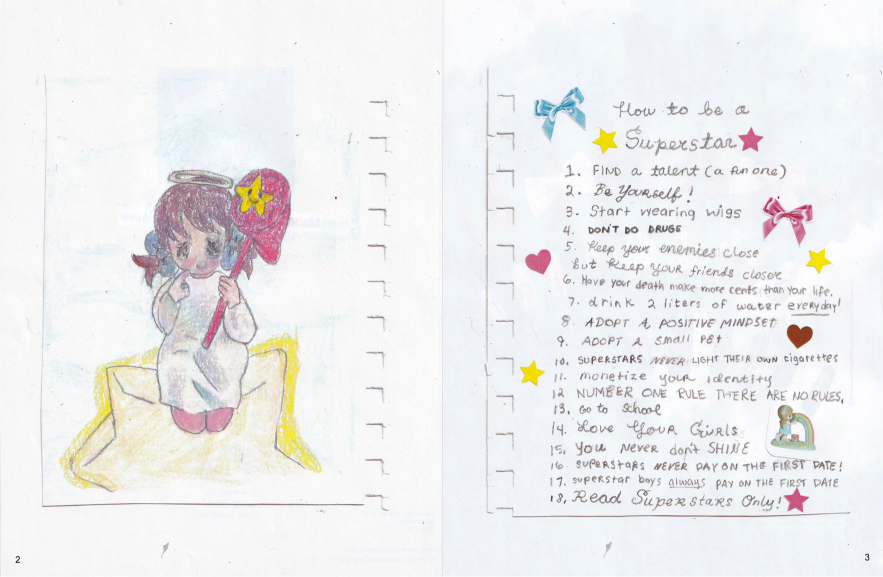 How to be a
Superstar
1. FIND a talent (a fun one)
2. Be Yourself!
3. Start wearing wigs
4. DON'T DO DRUGS
5. Keep your enemies close
but Keep YOUR friends closer
6. Have your death make more cents than your life.
7. drink 2 liters of water everyday!
8. ADOPT A POSITIVE MINDSET
9. ADOPT A Small PEt
10. SUPERSTARS NEVER LIGHT THEIR OWN cigarettes
11. monetize your identity
12 NUMBER ONE RULE THERE ARE NO RULES,
13. Go to School
14. Love YOUR GIRLS
15. YOU NEVER don't SHINE
16. SUPERSTARS NEVER PAY ON THE FIRST DATE!
17. superstar boys always PAY ON THE FIRST DATE
18. Read Superstars Only!
2
3